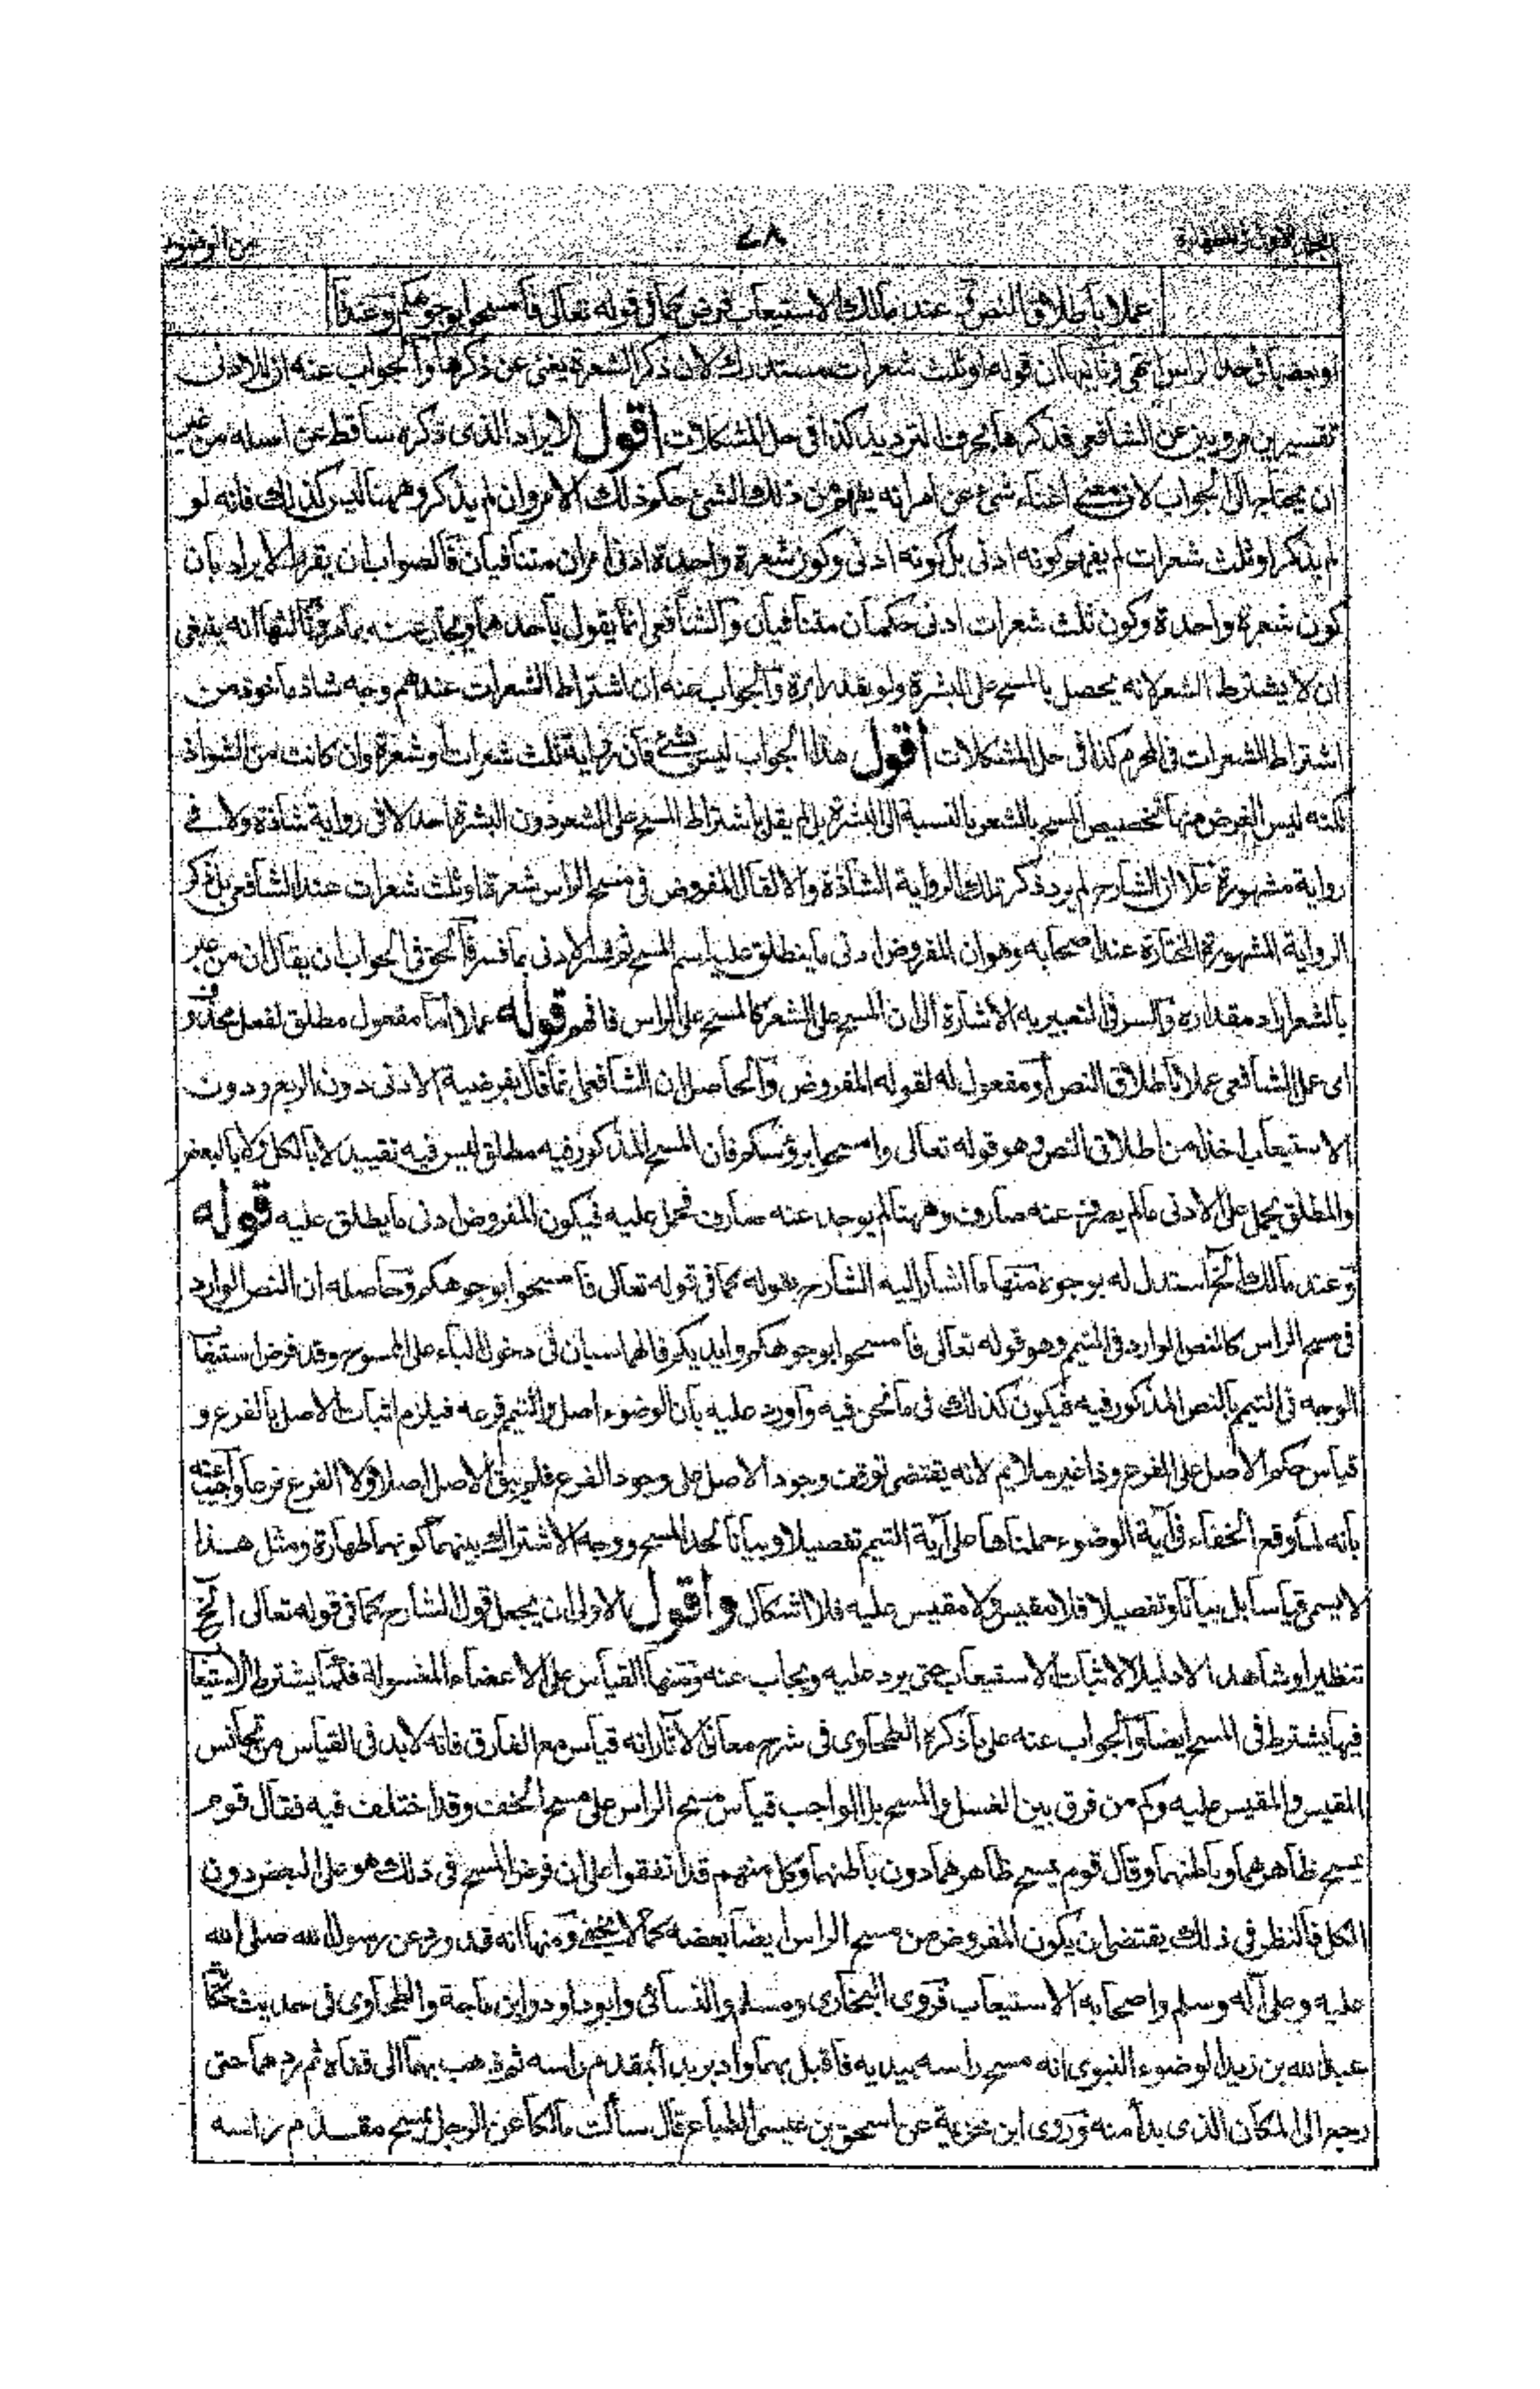 المجلد الاول في الطهارة
٧٨
من الوضوء
عملا باطلاق النص وعند مالك الاستيعاب فرض كما في قوله تعالى فامسحوا بوجوهكم وعندنا
او بعضها في حد الراس انتهى وثانيها ان قوله او ثلث شعرات مستدرك لان ذكر الشعرة يغني عن ذكرها والجواب عنه ان للادنى
تفسيرين مرويين عن الشافعي فذكرهما بحرف الترديد كذا في حل المشكلات اقول الايراد الذي ذكره ساقط عن اصله من غير
ان يحتاج الى الجواب لان معنى اغناء شئ عن امر انه يفهم من ذلك الشئ حكم ذلك الامر وان لم يذكر وههنا ليس كذلك فانه لو
لم يذكر او ثلث شعرات لم يفهم كونه ادنى بل كونه ادنى وكون شعرة واحدة ادنى امران متنافيان فالصواب ان يقرر الايراد بان
كون شعرة واحدة وكون ثلث شعرات ادنى حكمان متنافيان والشافعي انما يقول باحدهما ويجاب عنه بما مر وثالثها انه ينبغي
ان لا يشترط الشعر لانه يحصل بالمسح على البشرة ولو بقدر ابرة والجواب عنه ان اشتراط الشعرات عندهم وجه شاذ ماخوذ من
اشتراط الشعرات في المحرم كذا في حل المشكلات اقول هذا الجواب ليس بشئ فان رواية ثلث شعرات او شعرة وان كانت من الشواذ
لكنه ليس الغرض منها تخصيص المسح بالشعر بالنسبة الى البشرة بل لم يقل باشتراط المسح على الشعر دون البشرة احد لا في رواية شاذة ولا في
رواية مشهورة علا ان الشارح لم يرد ذكر تلك الرواية الشاذة والا لقال المفروض في مسح الراس شعرة او ثلث شعرات عند الشافعي بل ذكر
الرواية المشهورة المختارة عند اصحابه وهو ان المفروض ادنى ما ينطلق عليه اسم المسح ثم فسر الادنى بما فسر فالحق في الجواب ان يقال ان من عبر
بالشعر اراد مقداره والسر في التعبير به الاشارة الى ان المسح على الشعر كالمسح على الراس فافهم قوله عملا اما مفعول مطلق لفعل محذوف
اى عمل الشافعي عملا باطلاق النص او مفعول له لقوله المفروض والحاصل ان الشافعي انما قال بفرضية الادنى دون الربع ودون
الاستيعاب اخذا من اطلاق النص وهو قوله تعالى وامسحوا برؤسكم فان المسح المذكور فيه مطلق ليس فيه تقييد لا بالكل ولا بالبعض
والمطلق يحمل على الادنى ما لم يصرف عنه صارف وههنا لم يوجد عنه صارف فحمل عليه فيكون المفروض ادنى ما يطلق عليه قوله
وعند مالك الخ استدل له بوجوه منها ما اشار اليه الشارح بقوله كما في قوله تعالى فامسحوا بوجوهكم وحاصله ان النص الوارد
في مسح الراس كالنص الوارد في التيمم وهو قوله تعالى فامسحوا بوجوهكم وايديكم فانهما سيان في دخول الباء على الممسوح وقد فرض استيعاب
الوجه في التيمم بالنص المذكور فيه فيكون كذلك في ما نحن فيه واورد عليه بان الوضوء اصل والتيمم فرعه فيلزم اثبات الاصل بالفرع و
قياس حكم الاصل على الفرع وذا غير ملائم لانه يقتضي توقف وجود الاصل على وجود الفرع فلم يبق الاصل اصلا ولا الفرع فرعا واجيب عنه
بانه لما وقع الخفاء في آية الوضوء حملناها على آية التيمم تفصيلا وبيانا لحد المسح ووجه الاشتراك بينهما كونهما طهارة ومثل هذا
لا يسمى قياسا بل بيانا وتفصيلا فلا مقيس ولا مقيس عليه فلا اشكال واقول الاولى ان يجعل قول الشارح كما في قوله تعالى الخ
تنظيرا وشاهدا لا دليلا لاثبات الاستيعاب حتى يرد عليه ويجاب عنه ومنها القياس على الاعضاء المغسولة فكما يشترط الاستيعاب
فيها يشترط في المسح ايضا والجواب عنه على ما ذكره الطحاوى في شرح معاني الآثار انه قياس مع الفارق فانه لا بد في القياس من تجانس
المقيس والمقيس عليه وكم من فرق بين الغسل والمسح بل الواجب قياس مسح الراس على مسح الخف وقد اختلف فيه فقال قوم
يمسح ظاهرهما وباطنهما وقال قوم يمسح ظاهرهما دون باطنهما وكل منهم قد اتفقوا على ان فرض المسح في ذلك هو على البعض دون
الكل فالنظر في ذلك يقتضي ان يكون المفروض من مسح الراس ايضا بعضه كما لا يخفى ومنها انه قد ورد عن رسول الله صلى الله
عليه وعلى آله وسلم واصحابه الاستيعاب فروى البخارى ومسلم والنسائي وابو داود وابن ماجة والطحاوى في حديث حكاية
عبد الله بن زيد الوضوء النبوى انه مسح راسه بيديه فاقبل بهما وادبر بدأ بمقدم راسه ثم ذهب بهما الى قفاه ثم ردهما حتى
رجع الى المكان الذي بدأ منه وروى ابن خزيمة عن اسحق بن عيسى الطباع قال سألت مالكا عن الرجل يمسح مقدم راسه